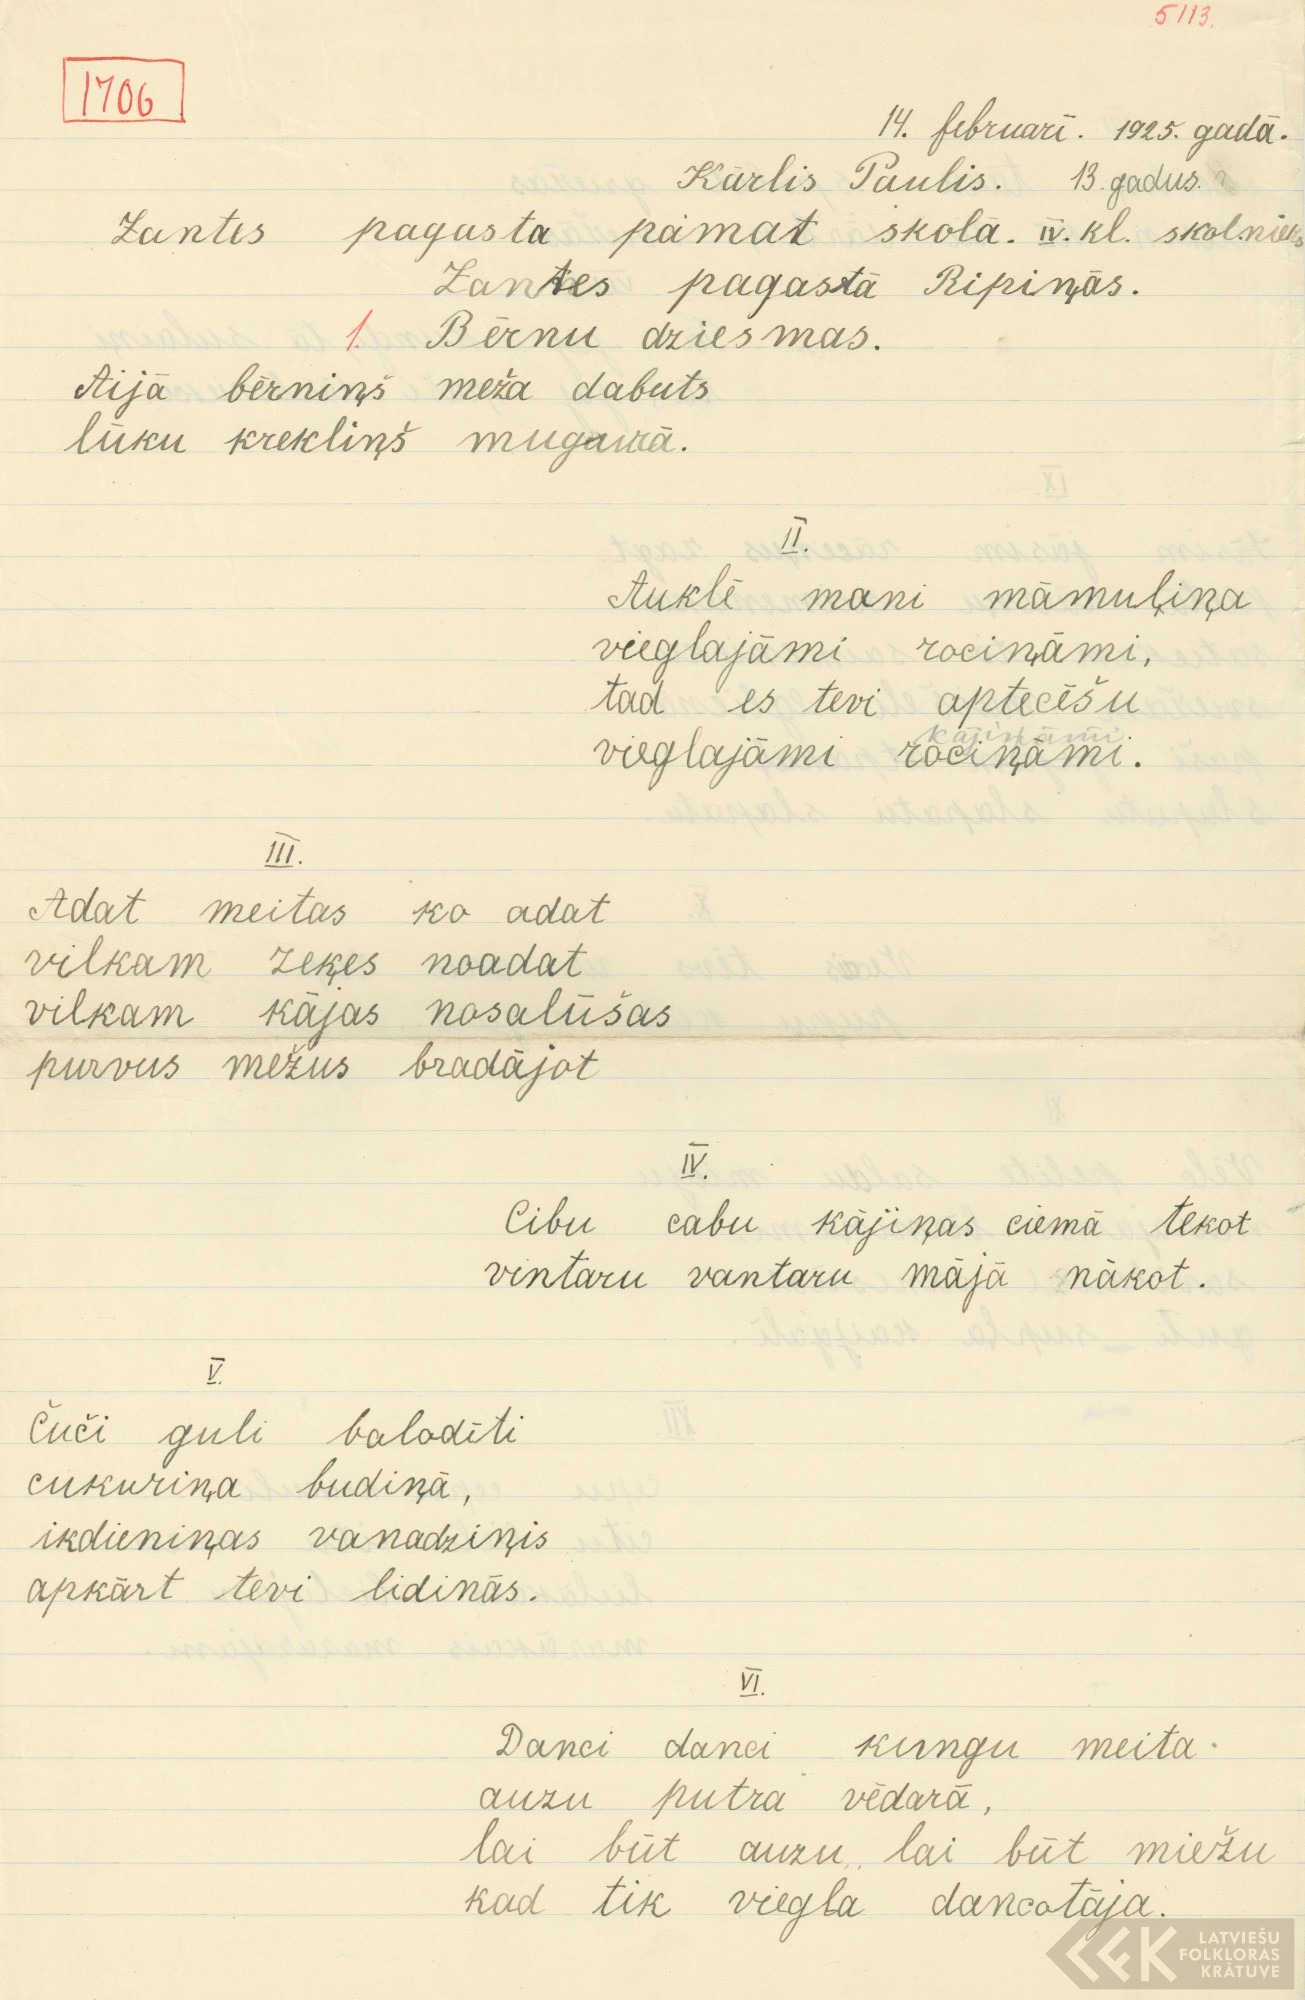 5113.
1706
14. februarī. 1925. gadā.
Kārlis Paulis. 13. gadus.
Zantes pagasta pamat skolā. IV. kl. skol.nieks
Zantes pagastā Ripiņās.
1. Bērnu dziesmas.
Aijā bērniņš meža dabuts
lūku krekliņš mugurā.
II.
Auklē mani māmuļiņa
vieglajāmi rociņāmi,
tad es tevi aptecēšu
kājiņāmi
vieglajāmi rociņāmi.
III.
Adat meitas ko adat
vilkam zeķes noadat
vilkam kājas nosalūšas
purvus mežus bradājot
IV.
Cibu cabu kājiņas ciemā tekot
vintaru vantaru mājā nākot.
V.
Čuči guli balodīti
cukuriņa budiņā,
ikdieniņas vanadziņis
apkārt tevi lidinās.
VI.
Danci danci kungu meita
auzu putra vēdarā,
lai būt auzu, lai būt miežu
kad tik viegla dancotāja.
LATVIEŠU
FOLKLORAS
KRĀTUVE